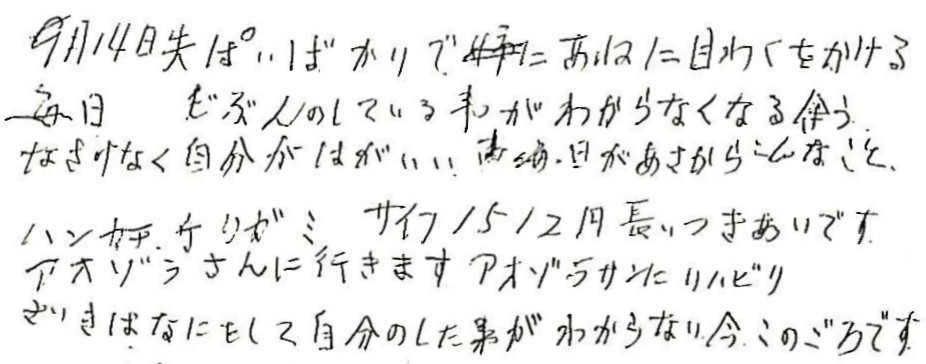 9月14日失ぱいばかりで あねに目わくをかける
毎日 ぢぶんのしている事がわからなくなる
なさけなく自分がはがいい、毎日があさからこんなこと、
ハンカチ、チリガミ サイフ1512円 長いつきあいです
アオゾラさんに行きます アオゾラサンにリハビリ
さいきはなにをして自分のした事がわからない今このごろです